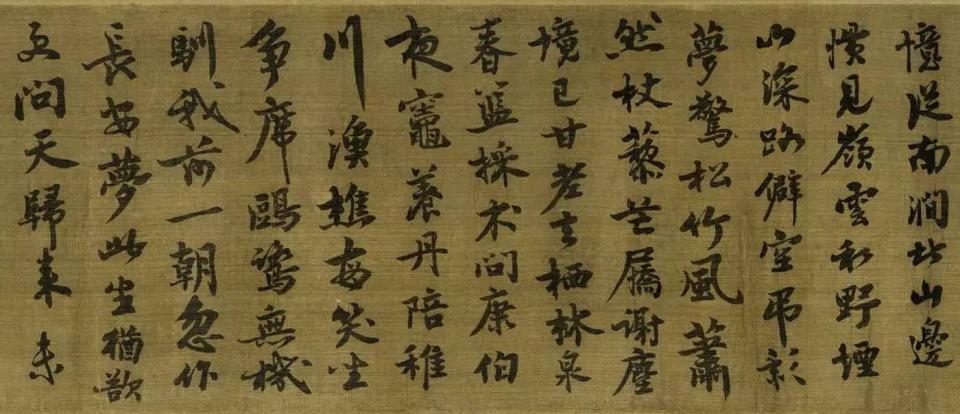 憶從南澗北山邊
慣見嶺雲和野煙
山深路僻空弔影
夢驚松竹風蕭
然杖藜芒屩謝塵
境已甘老去棲林泉
春籃採朮問康伯
夜竈養丹陪稚
川漁樵每笑坐
爭席鷗鷺無機
馴我前一朝忽作
長安夢此生猶欲
更問天歸來未